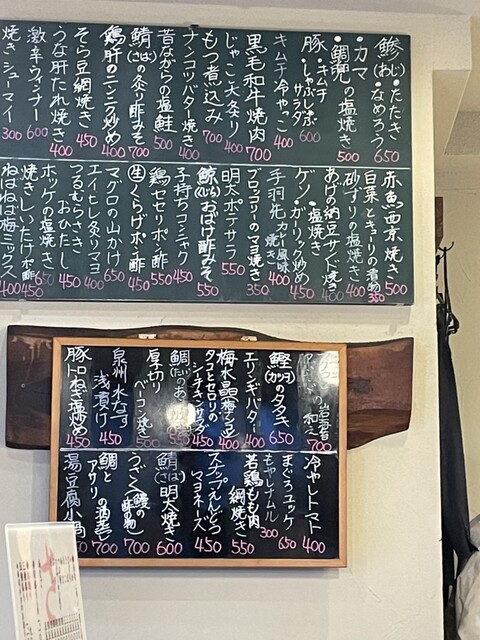 鯵(あじ)・たたき
・なめろう 650
・カマ
・鯛兜の塩焼き 500
豚・キムチ
・しゃぶしゃぶサラダ
キムチ冷やっこ 400
黒毛和牛焼肉 700
じゃこ大炙り 400
もつ煮込み 700
ナンコツバター焼き 400
昔ながらの塩鮭 500
鯖(さば)の炙り酢みそ 700
鶏肝のニンニク炒め 400
そら豆網焼き 450
うな肝たれ焼き 400
激辛ウィンナー 600
焼きシューマイ 300
赤魚西京焼き 500
白菜とキューリの漬物 350
砂ずりの塩焼き 400
あげの納豆サンド焼き 400
ゲソ・塩焼き
・ガーリック炒め 700
手羽先カレー風味焼き 400
ブロッコリーのマヨ焼き
明太ポテサラ 550
鯨(くじら)おばけ酢みそ 550
子持ちコンニャク 450
鶏皮セセリポン酢 550
生くらげポン酢 450
マグロの山かけ 650
エイヒレ炙りマヨ 400
つるむらさきおひたし 400
ホッケの塩焼き 650
焼きしいたけポン酢 450
ねばねば梅ミックス 400
岩海苔和え 700
鰹(カツヲ)のタタキ 650
エリンギバター 400
梅水晶
タコとセロリのシーチキンサラダ
鯛(たい)の
厚切ベーコン焼き 500
泉州水なす浅漬け 450
豚トロねぎ塩炒め 450
冷やしトマト 400
まぐろユッケ 650
もやしナムル 300
若鶏もも肉網焼き 550
スナップえんどうマヨネーズ 450
鯖(さば)明太焼き 600
うざく(鰻の酢の物) 700
鯛とアサリの酒蒸し 700
湯豆腐小鍋